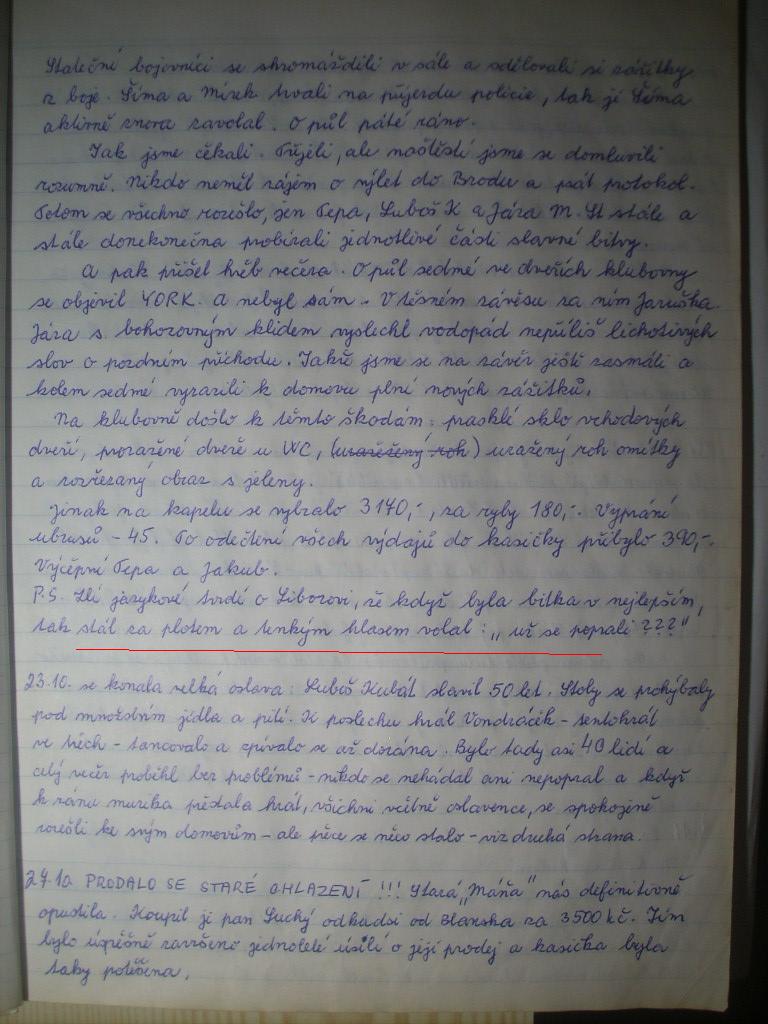 Stateční bojovníci se shromáždili v sále a sdělovali si zážitky
z boje. Šíma a Mirek trvali na příjezdu policie, tak ji Šíma
aktivně znova zavolal. O půl páté ráno.
Tak jsme čekali. Přijeli, ale naštěstí jsme se domluvili
rozumně. Nikdo neměl zájem o výlet do Brodu a psát protokol.
Potom se všechno rozešlo, jen Pepa, Luboš K a Jára M. St stále a
stále donekonečna probírali jednotlivé části slavné bitvy.
A pak přišel hřeb večera. O půl sedmé ve dveřích klubovny
se objevil YORK. A nebyl sám - V těsném závěsu za ním Jaruška.
Jára s bohorovným klidem vyslechl vodopád nepříliš lichotivých
slov o pozdním příchodu. Takže jsme se na závěr ještě zasmáli a
kolem sedmé vyrazili k domovu plni nových zážitků.
Na klubovně došlo k těmto škodám: prasklé sklo vchodových
dveří, proražené dveře u WC, (uražený roh) uražený roh omítky
a rozřezaný obraz s jeleny.
Jinak na kapelu se vybralo 3140,-, za ryby 180,-. Vyprání
ubrusů - 45. Po odečtení všech výdajů do kasičky přibylo 390,-.
Výčepní Pepa a Jakub.
P.S. Zlí jazykové tvrdí o Liborovi, že když byla bitka v nejlepším,
tak stál za plotem a tenkým hlasem volal: „už se poprali???"
23.10. se konala velká oslava: Luboš Kubát slavil 50 let. Stoly se prohýbaly
pod množstvím jídla a pití. K poslechu hrál Vondráček - tentokrát
ve třech - tancovalo a zpívalo se až do rána. Bylo tady asi 40 lidí a
celý večer proběhl bez problémů - nikdo se nehádal ani nepopral a když
k ránu muzika přestala hrát, všichni včetně oslavence, se spokojeně
rozešli ke svým domovům - ale přece se něco stalo - viz druhá strana.
27.10. PRODALO SE STARÉ CHLAZENÍ!!! Stará „Máňa" nás definitivně
opustila. Koupil ji pan Suchý odkudsi od Blanska za 3500 kč. Tím
bylo úspěšně završeno jednoleté úsilí o její prodej a kasička byla
taky potěšena.